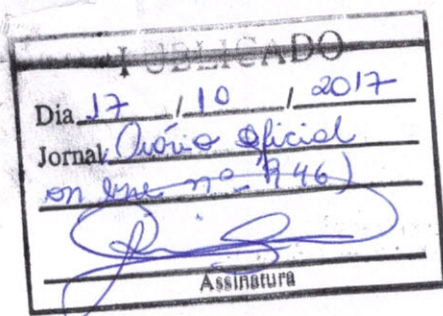 PUBLICADO
Dia 17 / 10 / 2017
Jornal: Diário Oficial
on line nº 946)
Assinatura